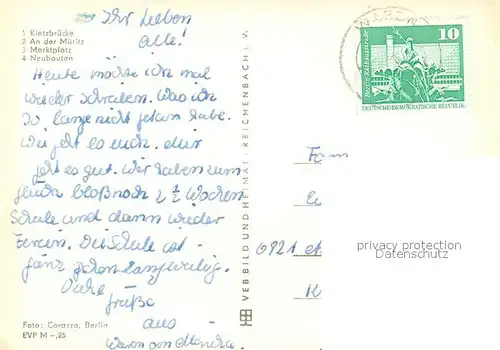 1 Kietzbrücke
2 An der Müritz
3 Marktplatz
4 Neubauten
Ihr Lieben
alle!
Heute möchte ich mal
wieder schreiben. Was ich
so lange nicht getan habe.
Wie geht es euch. Mir
geht es gut. Wir haben zum
Glück bloß noch 2 ½ Wochen
Schule und dann wieder
Ferien. Die Schule ist
ganz schön langweilig.
Viele
Grüße
aus
Waren am Müritz.
Foto: Corazza, Berlin
EVP M -,25
VEB BILD UND HEIMAT REICHENBACH I. V.
WAREN
10
Berlin, Rathausstraße
DEUTSCHE DEMOKRATISCHE REPUBLIK
Fam
0921
K
privacy protection
Datenschutz